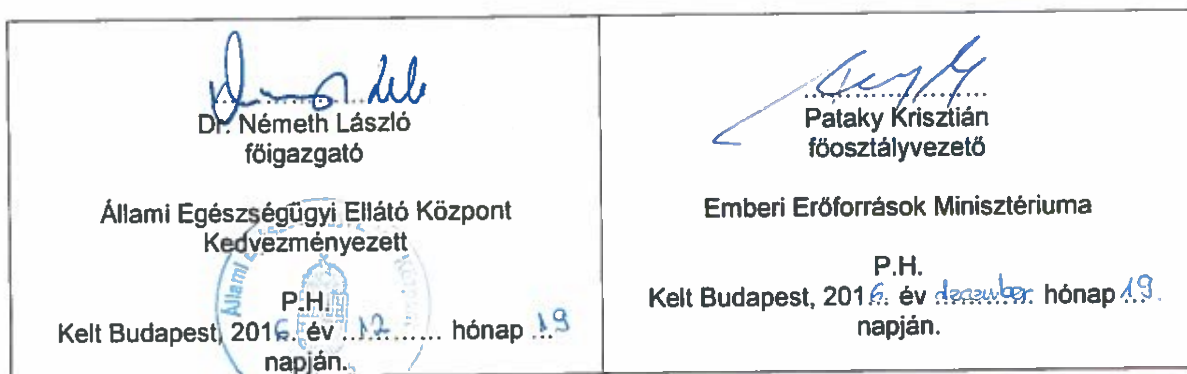 Dr. Németh László
főigazgató
Állami Egészségügyi Ellátó Központ
Kedvezményezett
P.H.
Kelt Budapest, 2016. év .12........ hónap ...19
napján.
Pataky Krisztián
főosztályvezető
Emberi Erőforrások Minisztériuma
P.H.
Kelt Budapest, 2016. év december hónap 19.
napján.